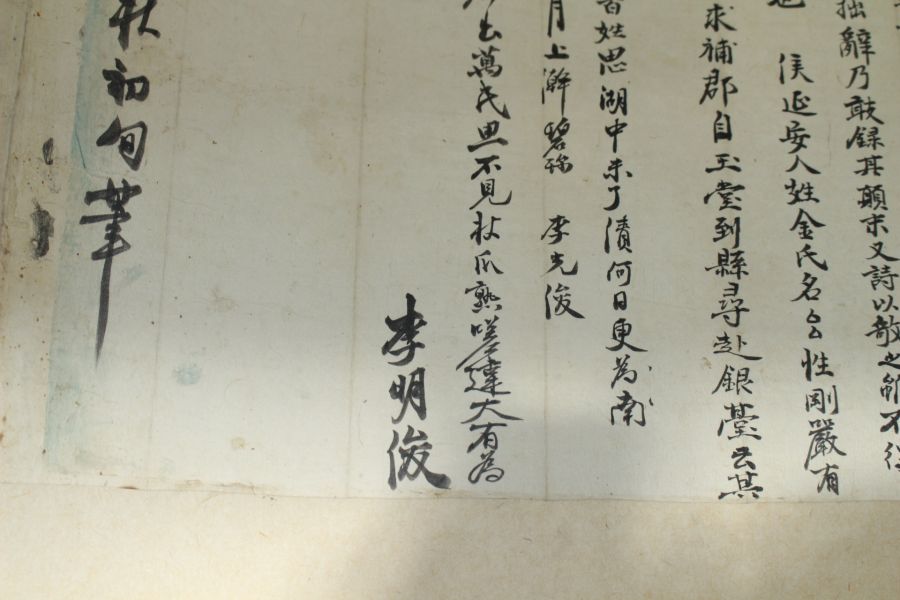 拙辭乃敢錄其顚末又詩以敬之
侯延安人姓金氏名 性剛嚴有
求補郡自玉堂到縣尋赴銀臺云其
百姓思湖中未了瀆何日更爲南
月上澣 李光俊
萬民思不見秋瓜熟 大有为
李明俊
秋初旬筆